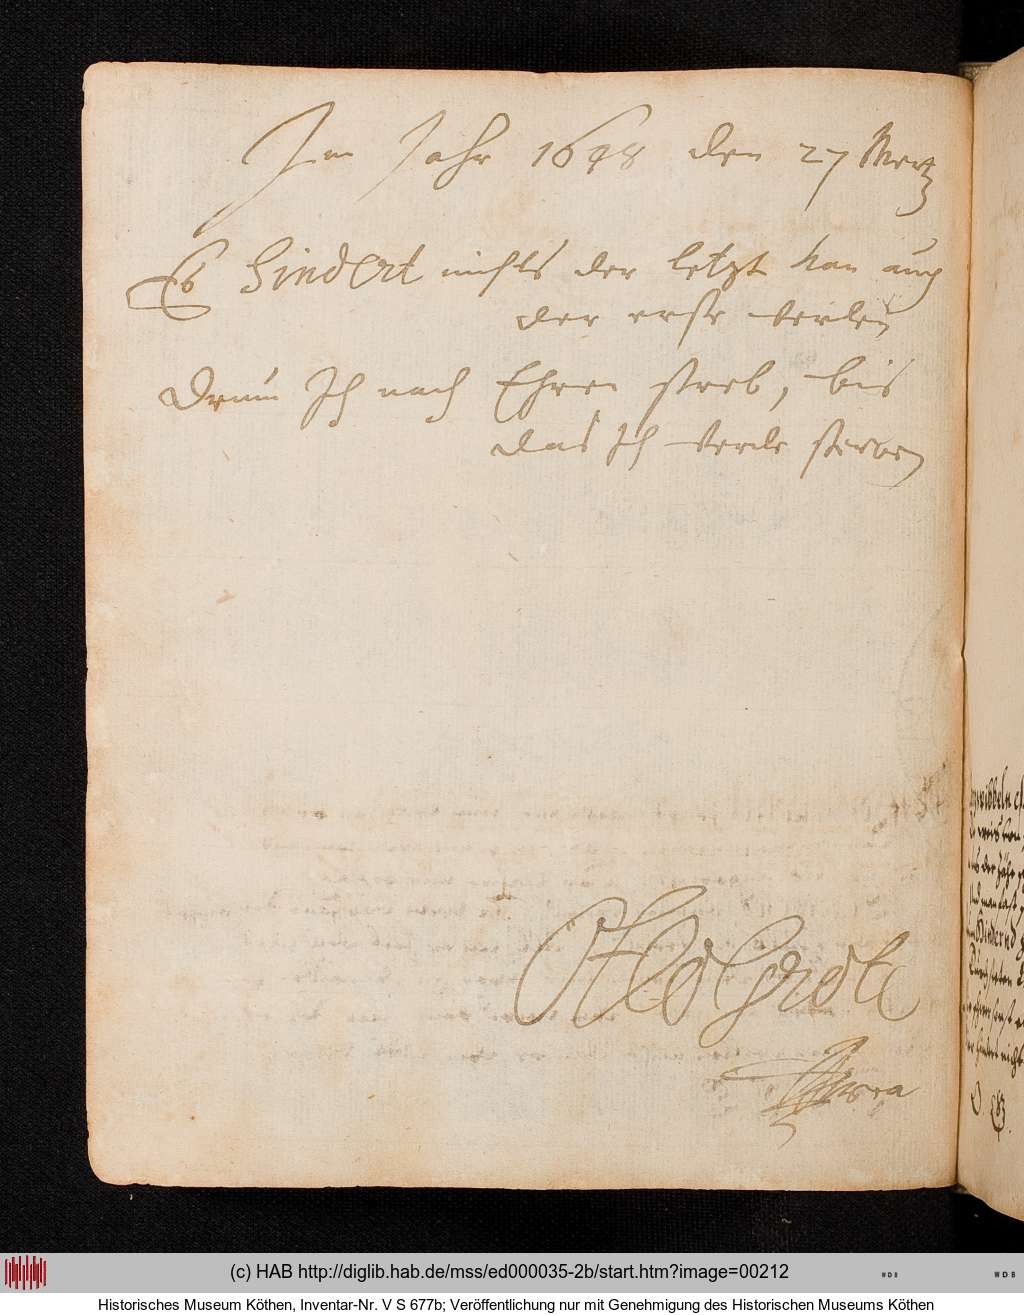 Im Jahr 1648 den 27 Mertz
Es hindert nichts der letzt kan auch
der erste werden
Drum Ich nach Ehren streb, bis
das Ich werde sterben
Otto Grote
(c) HAB http://diglib.hab.de/mss/ed000035-2b/start.htm?image=00212
Historisches Museum Köthen, Inventar-Nr. V S 677b; Veröffentlichung nur mit Genehmigung des Historischen Museums Köthen